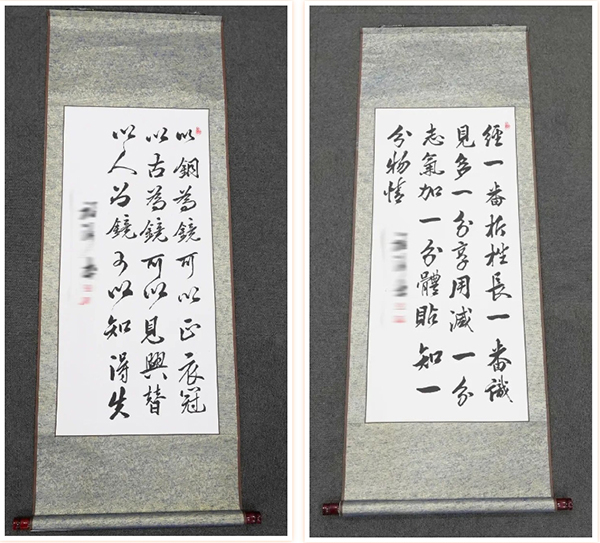 以銅為鏡可以正衣冠
以古為鏡可以見興替
以人为鏡可以知得失
經一番折挫長一番識
見多一分享用減一分
志氣加一分體貼知一
分物情